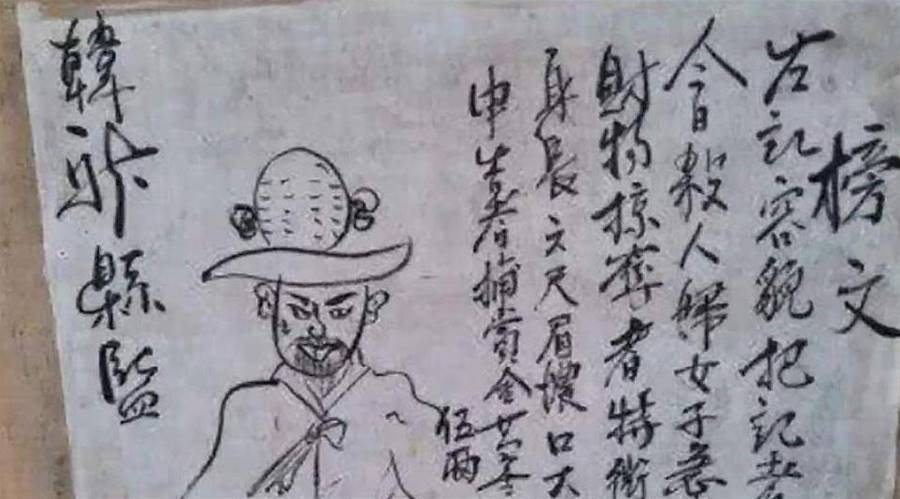 榜文
左記容貌把記者
今日殺人歸女子急
財物掠奪者特徵
身長六尺眉濃口大
申告者捕賞金
伍兩
縣監